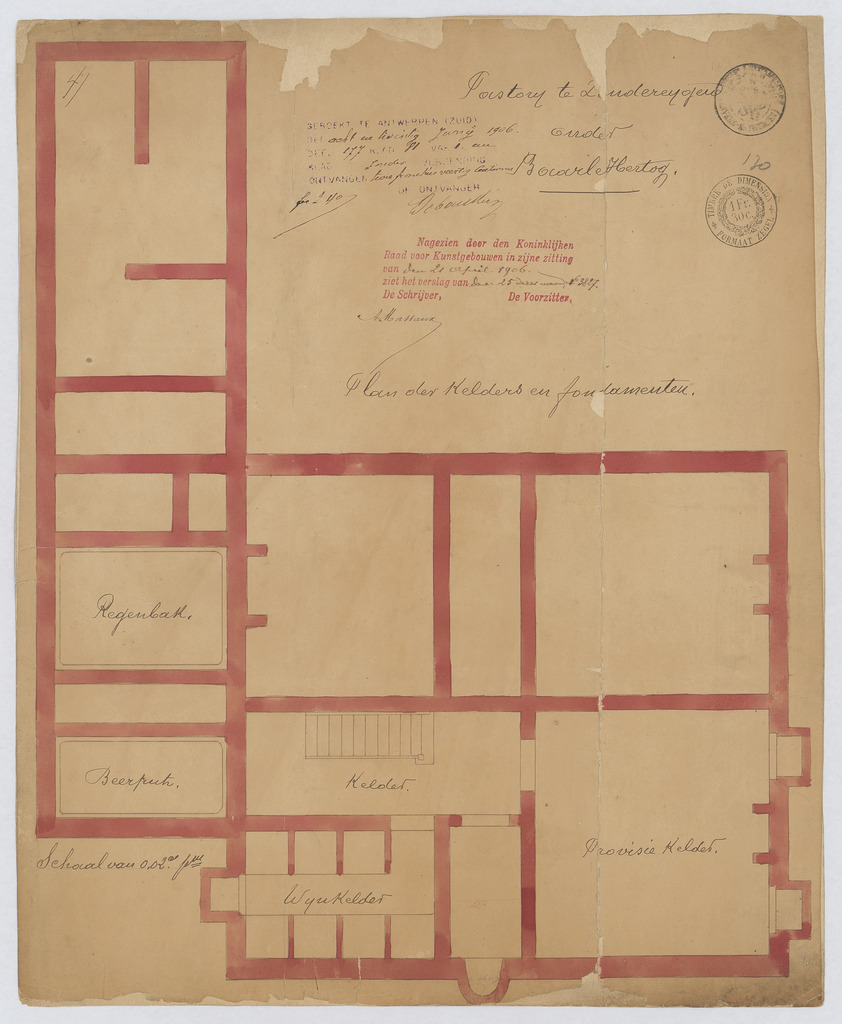 4/
Pastory te Zondereygen
onder
Baarle Hertog.
120
GEBOEKT TE ANTWERPEN (ZUID)
DEN acht en twintig Junij 1906.
DEEL 177 BLAD 91 VAK 1. een
BLAD zonder VERZENDING
ONTVANGEN twee franken veertig centimen
DE ONTVANGER
fr. 2.40
TIMBRE DE DIMENSION
1 FR. 30 C.
FORMAAT ZEGEL
Nagezien door den Koninklijken
Raad voor Kunstgebouwen in zijne zitting
van den 21 april 1906.
ziet het verslag van den 25
De Schrijver, De Voorzitter,
A. Massaux
Plan der Kelders en fondamenten.
Regenbak.
Beerput.
Kelder.
Schaal van 0.02
Provisie Kelder.
Wijnkelder